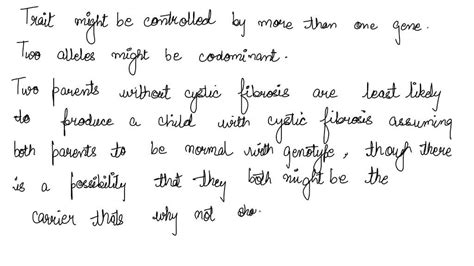 Trait might be controlled by more than one gene.
Two alleles might be codominant.
Two parents without cystic fibrosis are least likely
to produce a child with cystic fibrosis assuming
both parents to be normal with genotype, though there
is a possibility that they both might be the
carrier thats why not